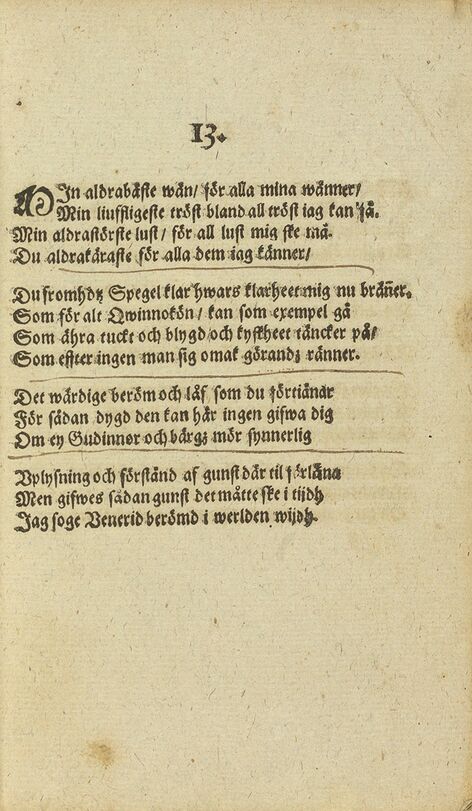 13.
MIn aldrabäste wän/ för alla mina wänner/
Min liuffligeste tröst bland all tröst iag kan få.
Min aldrastörste lust/ för all lust mig ske må.
Du aldrakäraste för alla dem iag känner/
Du fromhdtz Spegel klar hwars klarheet mig nu bräñer.
Som för alt Qwinnokön/ kan som exempel gå
Som ähra tuckt och blygd och kyskheet täncker på/
Som effter ingen man sig omak görandz ränner.
Det wärdige beröm och låf som du förtiänar
För sådan dygd den kan här ingen gifwa dig
Om ey Gudinnor och bärgz mör synnerlig
Vplysning och förstånd af gunst där til förläna
Men gifwes sådan gunst det måtte ske i tijdh
Jag soge Venerid berömd i werlden wijdh.